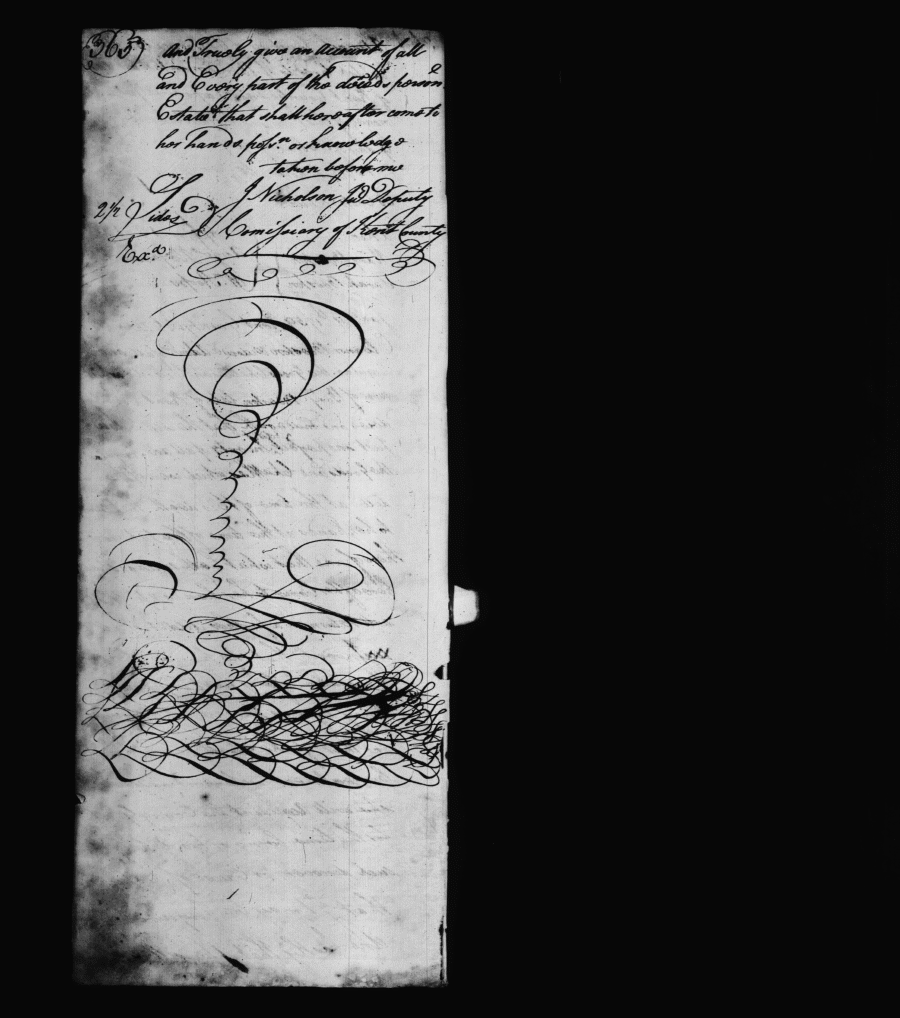 363
and Truely give an account of all
and Every part of the deceds person
Estate that shall hereafter come to
her hands posn. or knowledge
taken before me
J Nicholson Jr Deputy
2 1/2 Sides
Comissiary of Kent County
Exd.